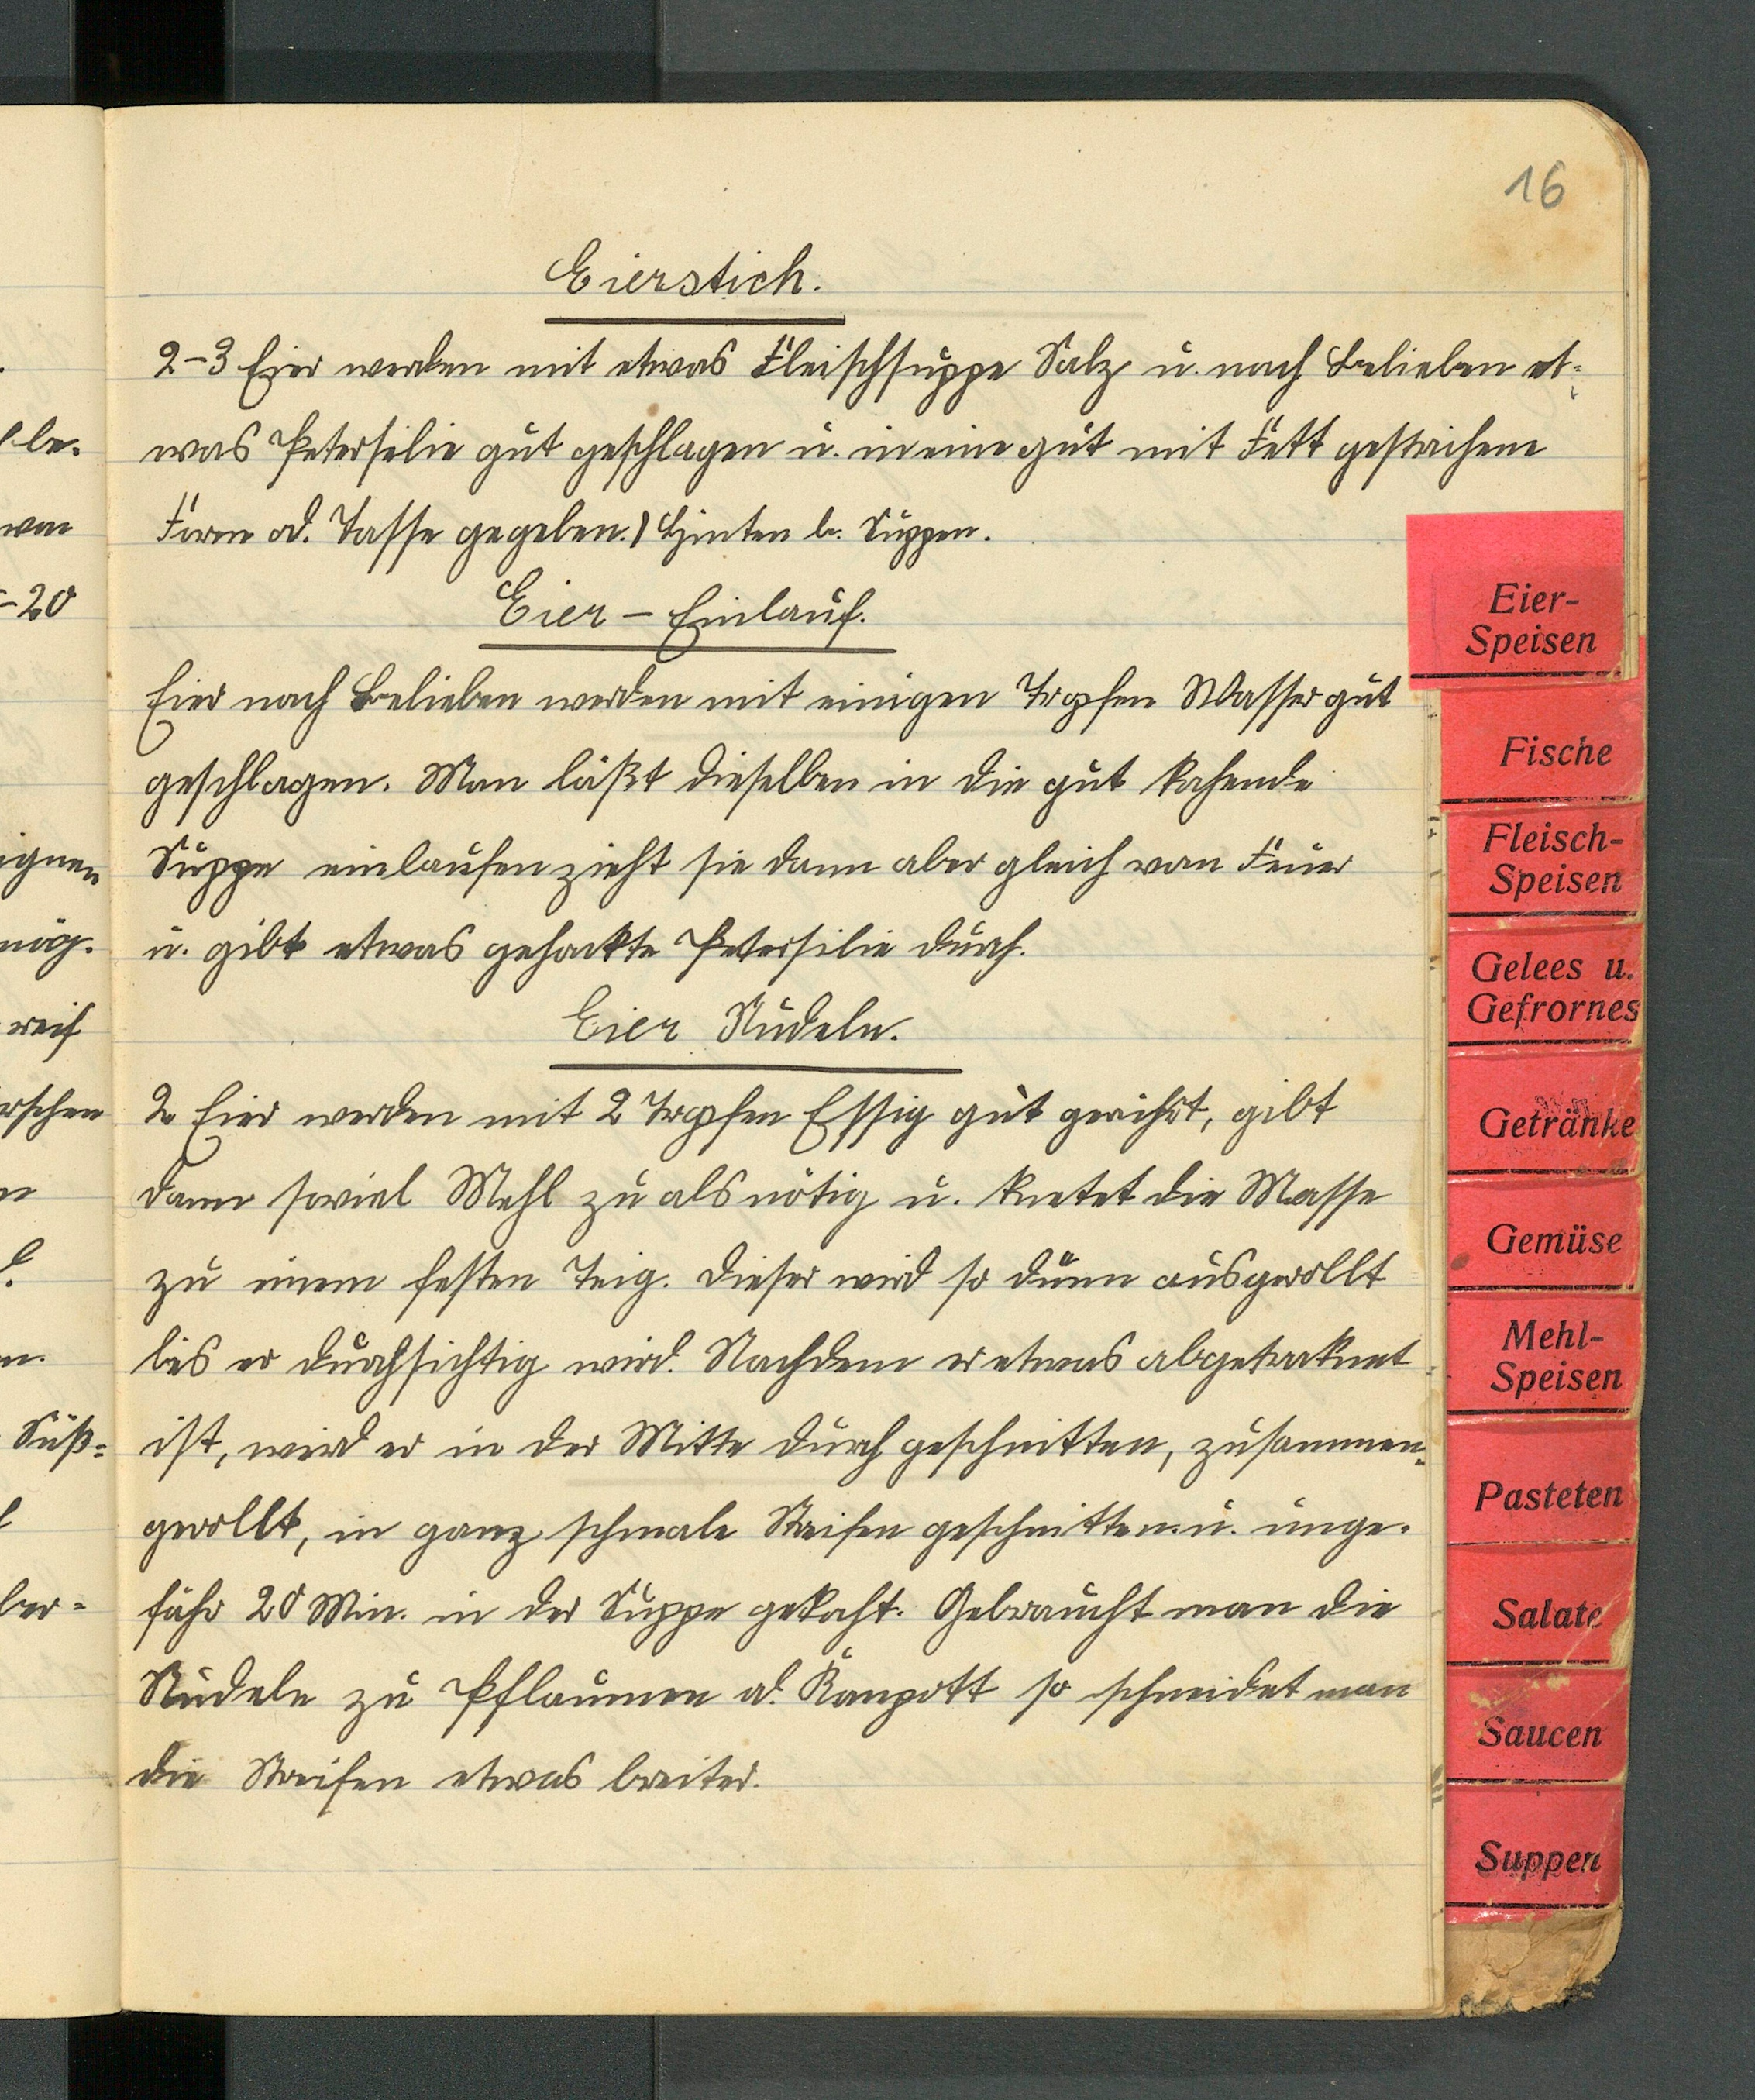 be.
von
-20
ignen
mög.
reif
rschen
n
Süß=
ber=
16
Eierstich.
2-3 Eier werden mit etwas Fleischsuppe Salz u. nach Belieben et=
was Petersilie gut geschlagen u. in eine gut mit Fett gestrichene
Form od. Tasse gegeben.) Hinten b. Suppen.
Eier - Einlauf.
Eier nach Belieben werden mit einigen Tropfen Wasser gut
geschlagen. Man läßt dieselben in die gut kochende
Suppe einlaufen zieht sie dann aber gleich vom Feuer
u. gibt etwas gehackte Petersilie durch.
Eier Nudeln.
2 Eier werden mit 2 Tropfen Essig gut gerührt, gibt
dann soviel Mehl zu als nötig u. knetet die Masse
zu einem festen Teig. Dieser wird so dünn ausgerollt
bis er durchsichtig wird. Nachdem er etwas abgetroknet
ist, wird er in der Mitte durch geschnitten, zusammen=
gerollt, in ganz schmale Streifen geschnitten. u. unge.
fähr 20 Min. in der Suppe gekocht. Gebraucht man die
Nudeln zu Pflaumen od. Kompott so schneidet man
die Streifen etwas breiter.
Eier-
Speisen
Fische
Fleisch-
Speisen
Gelees u.
Gefrornes
Getränke
Gemüse
Mehl-
Speisen
Pasteten
Salate
Saucen
Suppen